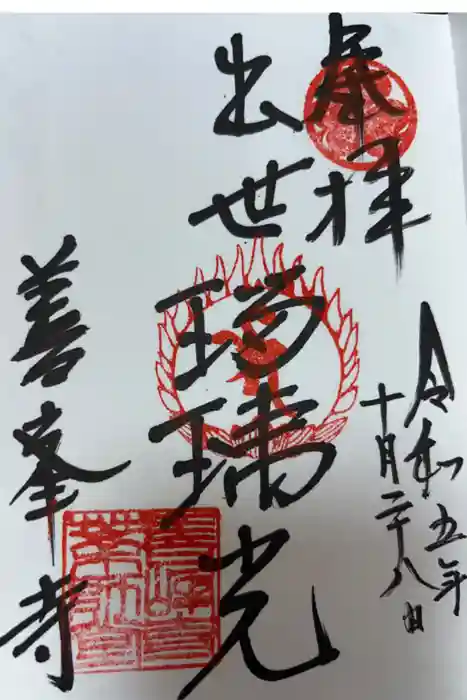 奉拝
令和五年
十月二十八日
出世
瑠璃光
善峯寺